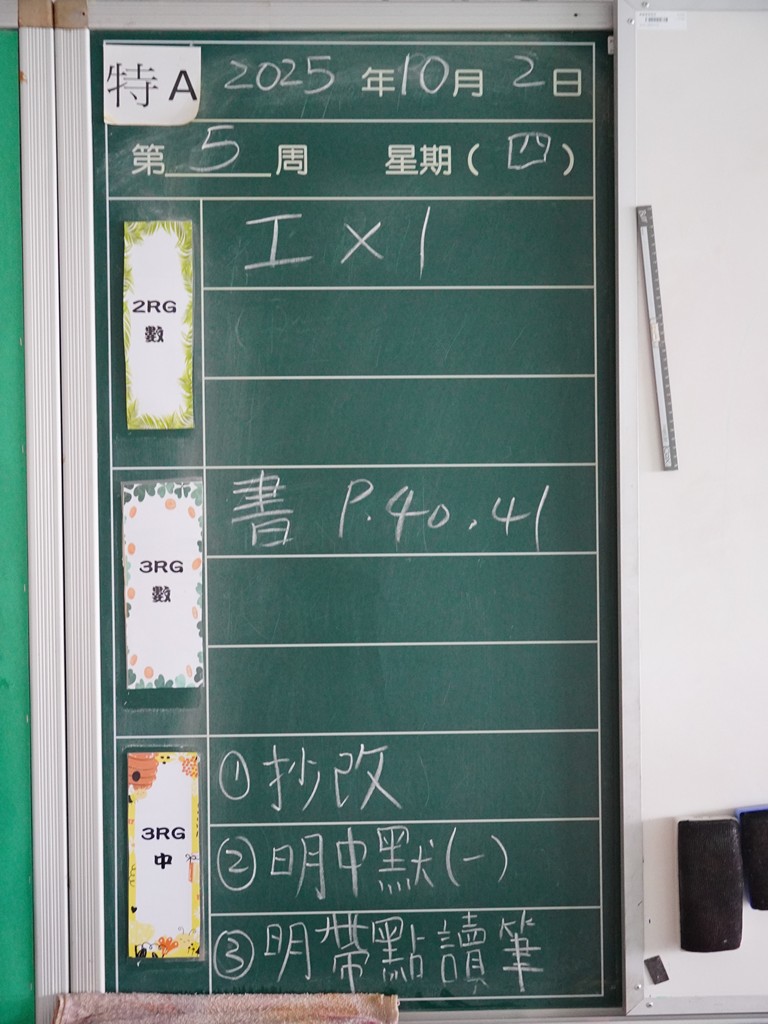 特A 2025年10月2日
第5周 星期(四)
2RG
數
工×1
3RG
數
書 P.40.41
3RG
中
①抄改
②明中默(一)
③明帶點讀筆